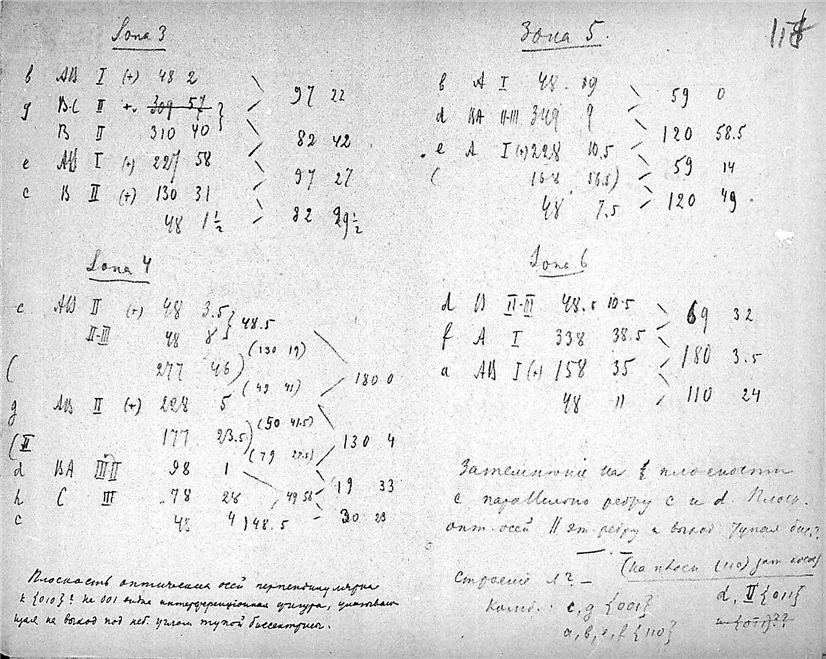 Зона 3
b AB I (+) 48 2
97 22
g BC II +. 309 57
B II 310 40
82 42
e AB I (+) 227 58
97 27
c B II (+) 130 31
82 29½
48 1½
Зона 4
c AB II (+) 48 3.5
48.5
II-III 48 8
(130 19)
( 277 46)
(49 41)
180 0
g AB II (+) 228 5
(50 41.5)
(II 177 23.5)
130 4
(79 27.5)
d BA III-II 98 1
19 33
h C III 78 28
49 56
30 23
c 48 4
48.5
Плоскость оптических осей перпендикулярна
к {010}? На 001 видна интерференционная фигура, указываю
щая на выход под неб. углом тупой биссектрисы.
118
Зона 5.
b A I 48. 19
59 0
d BA II-III 349 9
120 58.5
e A I (+) 228 10.5
59 14
( 168 56.5)
120 49
48 7.5
Зона 6
d B II-III 48.5 10.5
69 32
f A I 338 38.5
180 3.5
a AB I (+) 158 35
110 24
48 11
Затемнение на f плоскости
с параллельно ребру c и d. Плоск.
опт. осей II эт. ребру и выход. тупая бис.?
(на плоск (110) зат косое)
Строение
Комб.: c, g {001}
d, II {011}
a, b, e, f {110}
{011}??